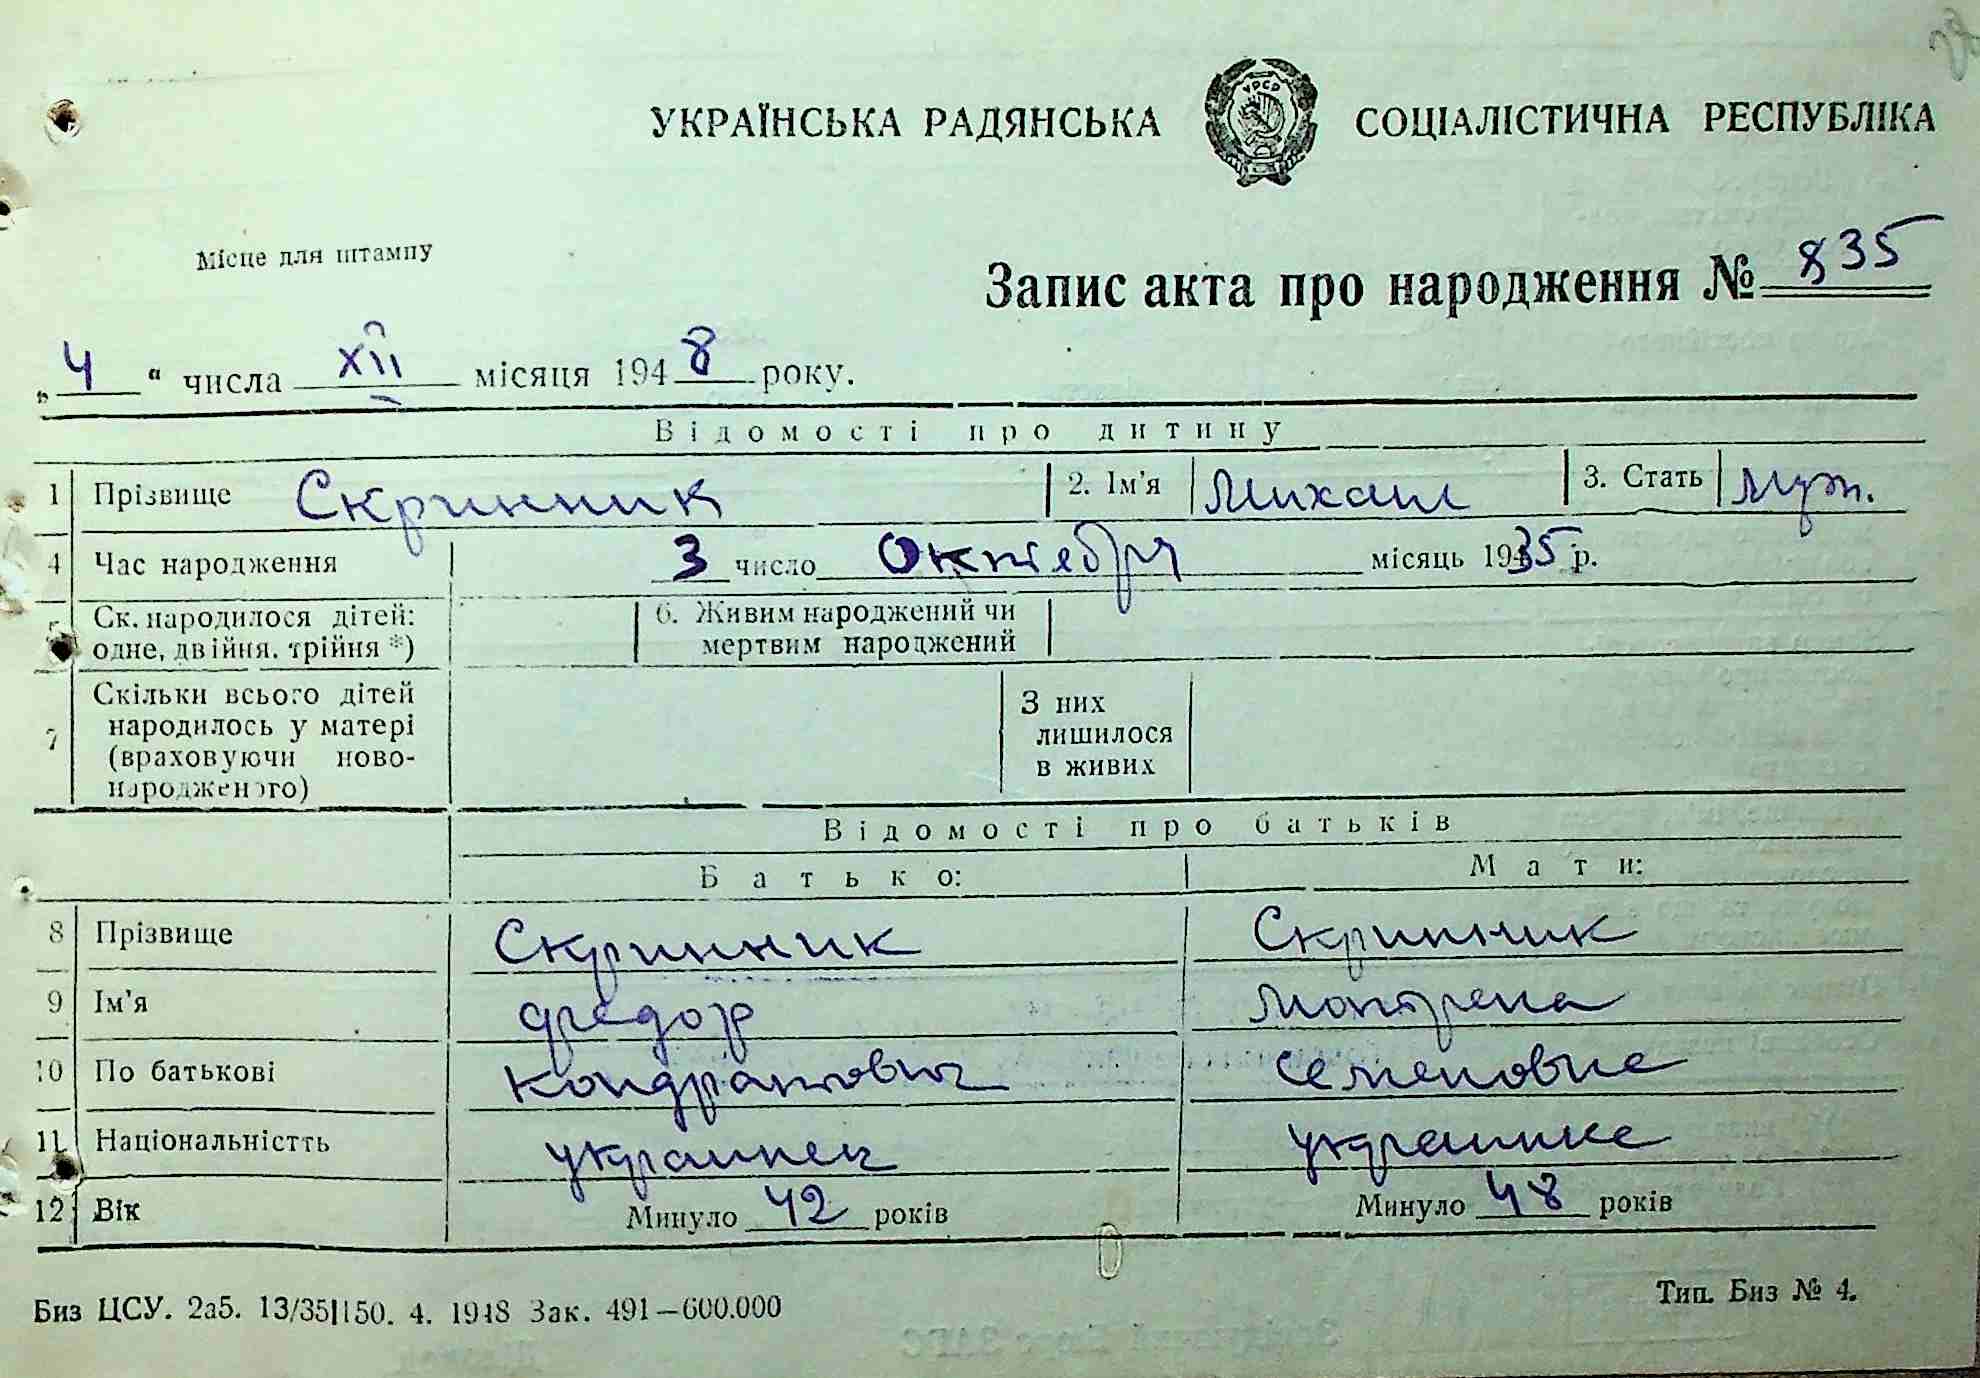 УКРАЇНСЬКА РАДЯНСЬКА СОЦІАЛІСТИЧНА РЕСПУБЛІКА
УРСР
Місце для штампу
Запис акта про народження № 835
„4“ числа XII місяця 1948 року.
Відомості про дитину
1 Прізвище Скринник 2. Ім'я Михаил 3. Стать муж.
4 Час народження 3 число Октября місяць 1935 р.
5 Ск. народилося дітей: 6. Живим народжений чи
одне, двійня, трійня *) мертвим народжений
Скільки всього дітей З них
7 народилось у матері лишилося
(враховуючи ново- в живих
народженого)
Відомості про батьків
Батько: Мати:
8 Прізвище Скринник Скринник
9 Ім'я Федор Мотрена
10 По батькові Кондратович Семеновна
11 Національністть украинец украинка
12 Вік Минуло 42 років Минуло 48 років
Биз ЦСУ. 2а5. 13/35|150. 4. 1948 Зак. 491—600.000
Тип. Биз № 4.